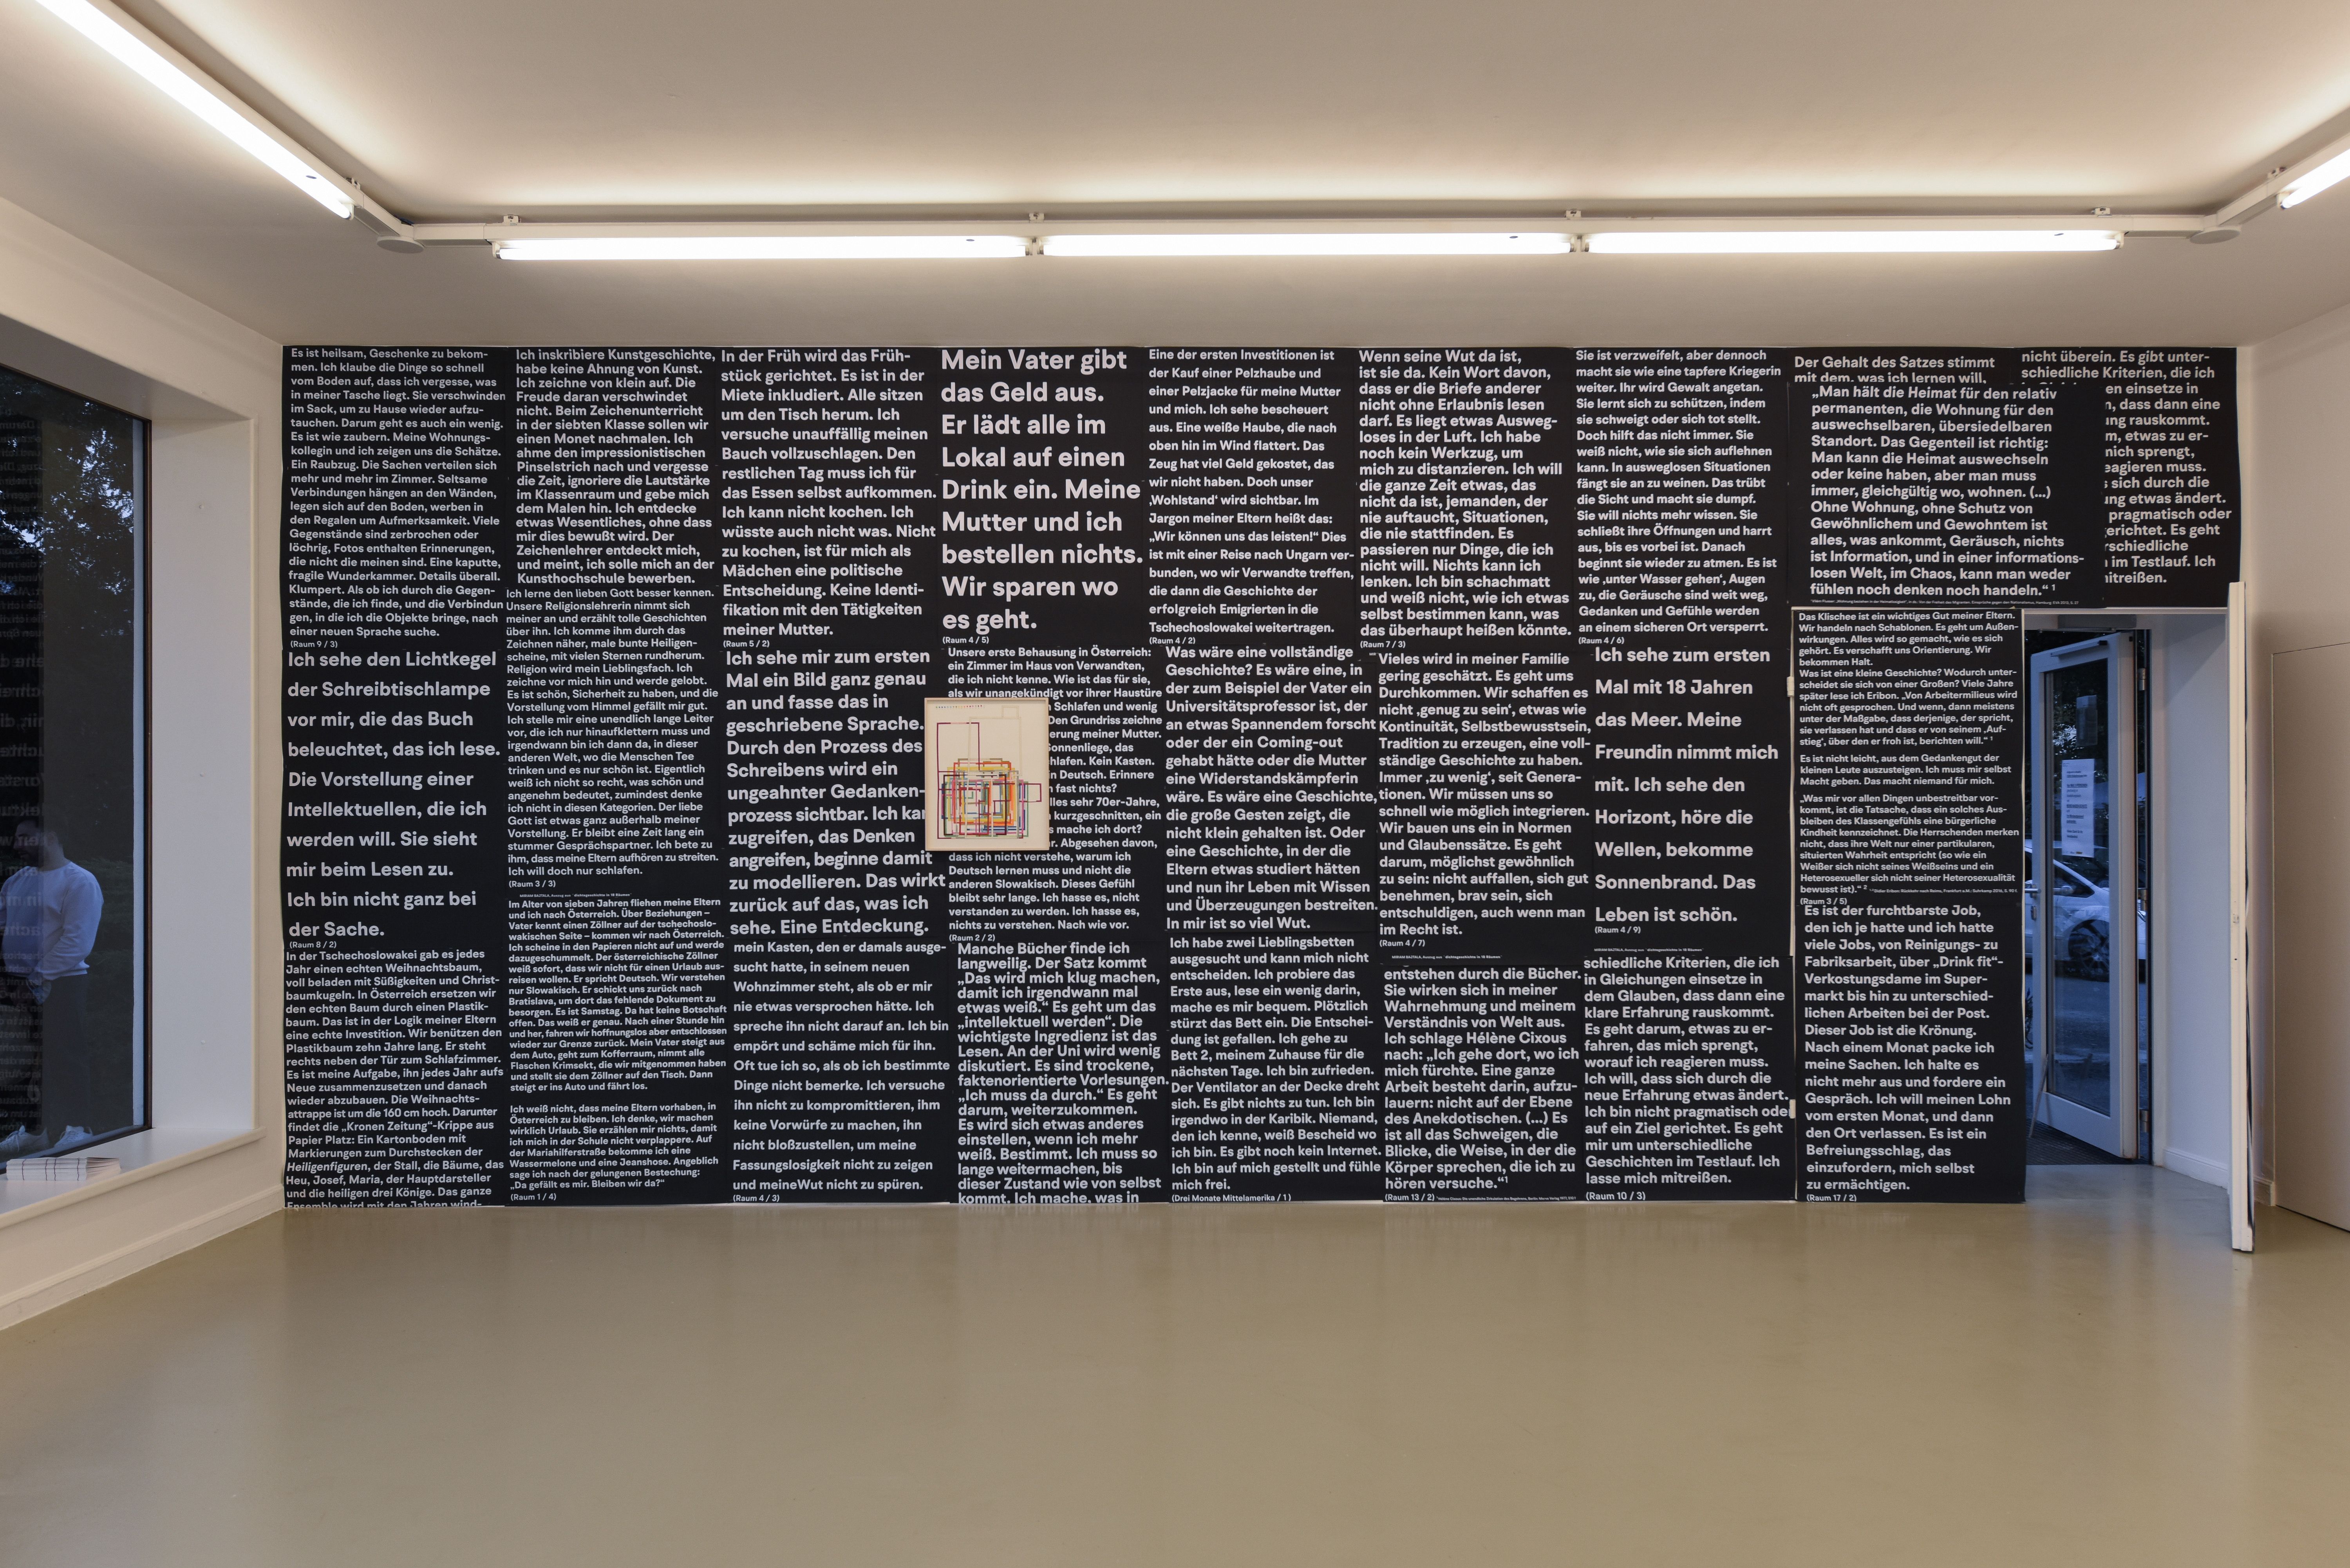 Es ist heilsam, Geschenke zu bekom-
men. Ich klaube die Dinge so schnell
vom Boden auf, dass ich vergesse, was
in meiner Tasche liegt. Sie verschwinden
im Sack, um zu Hause wieder aufzu-
tauchen. Darum geht es auch ein wenig.
Es ist wie zaubern. Meine Wohnungs-
kollegin und ich zeigen uns die Schätze.
Ein Raubzug. Die Sachen verteilen sich
mehr und mehr im Zimmer. Seltsame
Verbindungen hängen an den Wänden,
legen sich auf den Boden, werben in
den Regalen um Aufmerksamkeit. Viele
Gegenstände sind zerbrochen oder
löchrig, Fotos enthalten Erinnerungen,
die nicht die meinen sind. Eine kaputte,
fragile Wunderkammer. Details überall.
Klumpert. Als ob ich durch die Gegen-
stände, die ich finde, und die Verbindun
gen, in die ich die Objekte bringe, nach
einer neuen Sprache suche.
(Raum 9 / 3)
Ich sehe den Lichtkegel
der Schreibtischlampe
vor mir, die das Buch
beleuchtet, das ich lese.
Die Vorstellung einer
Intellektuellen, die ich
werden will. Sie sieht
mir beim Lesen zu.
Ich bin nicht ganz bei
der Sache.
(Raum 8 / 2)
In der Tschechoslowakei gab es jedes
Jahr einen echten Weihnachtsbaum,
voll beladen mit Süßigkeiten und Christ-
baumkugeln. In Österreich ersetzen wir
den echten Baum durch einen Plastik-
baum. Das ist in der Logik meiner Eltern
eine echte Investition. Wir benützen den
Plastikbaum zehn Jahre lang. Er steht
rechts neben der Tür zum Schlafzimmer.
Es ist meine Aufgabe, ihn jedes Jahr aufs
Neue zusammenzusetzen und danach
wieder abzubauen. Die Weihnachts-
attrappe ist um die 160 cm hoch. Darunter
findet die „Kronen Zeitung“-Krippe aus
Papier Platz: Ein Kartonboden mit
Markierungen zum Durchstecken der
Heiligenfiguren, der Stall, die Bäume, das
Heu, Josef, Maria, der Hauptdarsteller
und die heiligen drei Könige. Das ganze
Ensemble wird mit den Jahren wind-
Ich inskribiere Kunstgeschichte,
habe keine Ahnung von Kunst.
Ich zeichne von klein auf. Die
Freude daran verschwindet
nicht. Beim Zeichenunterricht
in der siebten Klasse sollen wir
einen Monet nachmalen. Ich
ahme den impressionistischen
Pinselstrich nach und vergesse
die Zeit, ignoriere die Lautstärke
im Klassenraum und gebe mich
dem Malen hin. Ich entdecke
etwas Wesentliches, ohne dass
mir dies bewußt wird. Der
Zeichenlehrer entdeckt mich,
und meint, ich solle mich an der
Kunsthochschule bewerben.
Ich lerne den lieben Gott besser kennen.
Unsere Religionslehrerin nimmt sich
meiner an und erzählt tolle Geschichten
über ihn. Ich komme ihm durch das
Zeichnen näher, male bunte Heiligen-
scheine, mit vielen Sternen rundherum.
Religion wird mein Lieblingsfach. Ich
zeichne vor mich hin und werde gelobt.
Es ist schön, Sicherheit zu haben, und die
Vorstellung vom Himmel gefällt mir gut.
Ich stelle mir eine unendlich lange Leiter
vor, die ich nur hinaufklettern muss und
irgendwann bin ich dann da, in dieser
anderen Welt, wo die Menschen Tee
trinken und es nur schön ist. Eigentlich
weiß ich nicht so recht, was schön und
angenehm bedeutet, zumindest denke
ich nicht in diesen Kategorien. Der liebe
Gott ist etwas ganz außerhalb meiner
Vorstellung. Er bleibt eine Zeit lang ein
stummer Gesprächspartner. Ich bete zu
ihm, dass meine Eltern aufhören zu streiten.
Ich will doch nur schlafen.
(Raum 3 / 3)
Im Alter von sieben Jahren fliehen meine Eltern
und ich nach Österreich. Über Beziehungen –
Vater kennt einen Zöllner auf der tschechoslo-
wakischen Seite – kommen wir nach Österreich.
Ich scheine in den Papieren nicht auf und werde
dazugeschummelt. Der österreichische Zöllner
weiß sofort, dass wir nicht für einen Urlaub aus-
reisen wollen. Er spricht Deutsch. Wir verstehen
nur Slowakisch. Er schickt uns zurück nach
Bratislava, um dort das fehlende Dokument zu
besorgen. Es ist Samstag. Da hat keine Botschaft
offen. Das weiß er genau. Nach einer Stunde hin
und her, fahren wir hoffnungslos aber entschlossen
wieder zur Grenze zurück. Mein Vater steigt aus
dem Auto, geht zum Kofferraum, nimmt alle
Flaschen Krimsekt, die wir mitgenommen haben
und stellt sie dem Zöllner auf den Tisch. Dann
steigt er ins Auto und fährt los.
Ich weiß nicht, dass meine Eltern vorhaben, in
Österreich zu bleiben. Ich denke, wir machen
wirklich Urlaub. Sie erzählen mir nichts, damit
ich mich in der Schule nicht verplappere. Auf
der Mariahilferstraße bekomme ich eine
Wassermelone und eine Jeanshose. Angeblich
sage ich nach der gelungenen Bestechung:
„Da gefällt es mir. Bleiben wir da?“
(Raum 1 / 4)
In der Früh wird das Früh-
stück gerichtet. Es ist in der
Miete inkludiert. Alle sitzen
um den Tisch herum. Ich
versuche unauffällig meinen
Bauch vollzuschlagen. Den
restlichen Tag muss ich für
das Essen selbst aufkommen.
Ich kann nicht kochen. Ich
wüsste auch nicht was. Nicht
zu kochen, ist für mich als
Mädchen eine politische
Entscheidung. Keine Identi-
fikation mit den Tätigkeiten
meiner Mutter.
(Raum 5 / 2)
Ich sehe mir zum ersten
Mal ein Bild ganz genau
an und fasse das in
geschriebene Sprache.
Durch den Prozess des
Schreibens wird ein
ungeahnter Gedanken-
prozess sichtbar. Ich kan
zugreifen, das Denken
angreifen, beginne damit
zu modellieren. Das wirkt
zurück auf das, was ich
sehe. Eine Entdeckung.
mein Kasten, den er damals ausge-
sucht hatte, in seinem neuen
Wohnzimmer steht, als ob er mir
nie etwas versprochen hätte. Ich
spreche ihn nicht darauf an. Ich bin
empört und schäme mich für ihn.
Oft tue ich so, als ob ich bestimmte
Dinge nicht bemerke. Ich versuche
ihn nicht zu kompromittieren, ihm
keine Vorwürfe zu machen, ihn
nicht bloßzustellen, um meine
Fassungslosigkeit nicht zu zeigen
und meineWut nicht zu spüren.
(Raum 4 / 3)
Mein Vater gibt
das Geld aus.
Er lädt alle im
Lokal auf einen
Drink ein. Meine
Mutter und ich
bestellen nichts.
Wir sparen wo
es geht.
(Raum 4 / 5)
Unsere erste Behausung in Österreich:
ein Zimmer im Haus von Verwandten,
die ich nicht kenne. Wie ist das für sie,
als wir unangekündigt vor ihrer Haustüre
Schlafen und wenig
Den Grundriss zeichne
erung meiner Mutter.
Sonnenliege, das
hlafen. Kein Kasten.
n Deutsch. Erinnere
h fast nichts?
lles sehr 70er-Jahre,
kurzgeschnitten, ein
s mache ich dort?
r. Abgesehen davon,
dass ich nicht verstehe, warum ich
Deutsch lernen muss und nicht die
anderen Slowakisch. Dieses Gefühl
bleibt sehr lange. Ich hasse es, nicht
verstanden zu werden. Ich hasse es,
nichts zu verstehen. Nach wie vor.
(Raum 2 / 2)
Manche Bücher finde ich
langweilig. Der Satz kommt
„Das wird mich klug machen,
damit ich irgendwann mal
etwas weiß.“ Es geht um das
„intellektuell werden“. Die
wichtigste Ingredienz ist das
Lesen. An der Uni wird wenig
diskutiert. Es sind trockene,
faktenorientierte Vorlesungen.
„Ich muss da durch.“ Es geht
darum, weiterzukommen.
Es wird sich etwas anderes
einstellen, wenn ich mehr
weiß. Bestimmt. Ich muss so
lange weitermachen, bis
dieser Zustand wie von selbst
kommt. Ich mache, was in
Eine der ersten Investitionen ist
der Kauf einer Pelzhaube und
einer Pelzjacke für meine Mutter
und mich. Ich sehe bescheuert
aus. Eine weiße Haube, die nach
oben hin im Wind flattert. Das
Zeug hat viel Geld gekostet, das
wir nicht haben. Doch unser
‚Wohlstand‘ wird sichtbar. Im
Jargon meiner Eltern heißt das:
„Wir können uns das leisten!“ Dies
ist mit einer Reise nach Ungarn ver-
bunden, wo wir Verwandte treffen,
die dann die Geschichte der
erfolgreich Emigrierten in die
Tschechoslowakei weitertragen.
(Raum 4 / 2)
Was wäre eine vollständige
Geschichte? Es wäre eine, in
der zum Beispiel der Vater ein
Universitätsprofessor ist, der
an etwas Spannendem forscht
oder der ein Coming-out
gehabt hätte oder die Mutter
eine Widerstandskämpferin
wäre. Es wäre eine Geschichte,
die große Gesten zeigt, die
nicht klein gehalten ist. Oder
eine Geschichte, in der die
Eltern etwas studiert hätten
und nun ihr Leben mit Wissen
und Überzeugungen bestreiten.
In mir ist so viel Wut.
Ich habe zwei Lieblingsbetten
ausgesucht und kann mich nicht
entscheiden. Ich probiere das
Erste aus, lese ein wenig darin,
mache es mir bequem. Plötzlich
stürzt das Bett ein. Die Entschei-
dung ist gefallen. Ich gehe zu
Bett 2, meinem Zuhause für die
nächsten Tage. Ich bin zufrieden.
Der Ventilator an der Decke dreht
sich. Es gibt nichts zu tun. Ich bin
irgendwo in der Karibik. Niemand,
den ich kenne, weiß Bescheid wo
ich bin. Es gibt noch kein Internet.
Ich bin auf mich gestellt und fühle
mich frei.
(Drei Monate Mittelamerika / 1)
Wenn seine Wut da ist,
ist sie da. Kein Wort davon,
dass er die Briefe anderer
nicht ohne Erlaubnis lesen
darf. Es liegt etwas Ausweg-
loses in der Luft. Ich habe
noch kein Werkzug, um
mich zu distanzieren. Ich will
die ganze Zeit etwas, das
nicht da ist, jemanden, der
nie auftaucht, Situationen,
die nie stattfinden. Es
passieren nur Dinge, die ich
nicht will. Nichts kann ich
lenken. Ich bin schachmatt
und weiß nicht, wie ich etwas
selbst bestimmen kann, was
das überhaupt heißen könnte.
(Raum 7 / 3)
Vieles wird in meiner Familie
gering geschätzt. Es geht ums
Durchkommen. Wir schaffen es
nicht ‚genug zu sein‘, etwas wie
Kontinuität, Selbstbewusstsein,
Tradition zu erzeugen, eine voll-
ständige Geschichte zu haben.
Immer ‚zu wenig‘, seit Genera-
tionen. Wir müssen uns so
schnell wie möglich integrieren.
Wir bauen uns ein in Normen
und Glaubenssätze. Es geht
darum, möglichst gewöhnlich
zu sein: nicht auffallen, sich gut
benehmen, brav sein, sich
entschuldigen, auch wenn man
im Recht ist.
(Raum 4 / 7)
entstehen durch die Bücher.
Sie wirken sich in meiner
Wahrnehmung und meinem
Verständnis von Welt aus.
Ich schlage Hélène Cixous
nach: „Ich gehe dort, wo ich
mich fürchte. Eine ganze
Arbeit besteht darin, aufzu-
lauern: nicht auf der Ebene
des Anekdotischen. (...) Es
ist all das Schweigen, die
Blicke, die Weise, in der die
Körper sprechen, die ich zu
hören versuche.“1
(Raum 13 / 2)
Sie ist verzweifelt, aber dennoch
macht sie wie eine tapfere Kriegerin
weiter. Ihr wird Gewalt angetan.
Sie lernt sich zu schützen, indem
sie schweigt oder sich tot stellt.
Doch hilft das nicht immer. Sie
weiß nicht, wie sie sich auflehnen
kann. In ausweglosen Situationen
fängt sie an zu weinen. Das trübt
die Sicht und macht sie dumpf.
Sie will nichts mehr wissen. Sie
schließt ihre Öffnungen und harrt
aus, bis es vorbei ist. Danach
beginnt sie wieder zu atmen. Es ist
wie ‚unter Wasser gehen‘, Augen
zu, die Geräusche sind weit weg,
Gedanken und Gefühle werden
an einem sicheren Ort versperrt.
(Raum 4 / 6)
Ich sehe zum ersten
Mal mit 18 Jahren
das Meer. Meine
Freundin nimmt mich
mit. Ich sehe den
Horizont, höre die
Wellen, bekomme
Sonnenbrand. Das
Leben ist schön.
(Raum 4 / 9)
schiedliche Kriterien, die ich
in Gleichungen einsetze in
dem Glauben, dass dann eine
klare Erfahrung rauskommt.
Es geht darum, etwas zu er-
fahren, das mich sprengt,
worauf ich reagieren muss.
Ich will, dass sich durch die
neue Erfahrung etwas ändert.
Ich bin nicht pragmatisch oder
auf ein Ziel gerichtet. Es geht
mir um unterschiedliche
Geschichten im Testlauf. Ich
lasse mich mitreißen.
(Raum 10 / 3)
Der Gehalt des Satzes stimmt
mit dem, was ich lernen will,
„Man hält die Heimat für den relativ
permanenten, die Wohnung für den
auswechselbaren, übersiedelbaren
Standort. Das Gegenteil ist richtig:
Man kann die Heimat auswechseln
oder keine haben, aber man muss
immer, gleichgültig wo, wohnen. (...)
Ohne Wohnung, ohne Schutz von
Gewöhnlichem und Gewohntem ist
alles, was ankommt, Geräusch, nichts
ist Information, und in einer informations-
losen Welt, im Chaos, kann man weder
fühlen noch denken noch handeln.“ 1
Das Klischee ist ein wichtiges Gut meiner Eltern.
Wir handeln nach Schablonen. Es geht um Außen-
wirkungen. Alles wird so gemacht, wie es sich
gehört. Es verschafft uns Orientierung. Wir
bekommen Halt.
Was ist eine kleine Geschichte? Wodurch unter-
scheidet sie sich von einer Großen? Viele Jahre
später lese ich Eribon. „Von Arbeitermilieus wird
nicht oft gesprochen. Und wenn, dann meistens
unter der Maßgabe, dass derjenige, der spricht,
sie verlassen hat und dass er von seinem ‚Auf-
stieg‘, über den er froh ist, berichten will.“ 1
Es ist nicht leicht, aus dem Gedankengut der
kleinen Leute auszusteigen. Ich muss mir selbst
Macht geben. Das macht niemand für mich.
„Was mir vor allen Dingen unbestreitbar vor-
kommt, ist die Tatsache, dass ein solches Aus-
bleiben des Klassengefühls eine bürgerliche
Kindheit kennzeichnet. Die Herrschenden merken
nicht, dass ihre Welt nur einer partikularen,
situierten Wahrheit entspricht (so wie ein
Weißer sich nicht seines Weißseins und ein
Heterosexueller sich nicht seiner Heterosexualität
bewusst ist).“ 2
(Raum 3 / 5)
Es ist der furchtbarste Job,
den ich je hatte und ich hatte
viele Jobs, von Reinigungs- zu
Fabriksarbeit, über „Drink fit“-
Verkostungsdame im Super-
markt bis hin zu unterschied-
lichen Arbeiten bei der Post.
Dieser Job ist die Krönung.
Nach einem Monat packe ich
meine Sachen. Ich halte es
nicht mehr aus und fordere ein
Gespräch. Ich will meinen Lohn
vom ersten Monat, und dann
den Ort verlassen. Es ist ein
Befreiungsschlag, das
einzufordern, mich selbst
zu ermächtigen.
(Raum 17 / 2)
nicht überein. Es gibt unter-
schiedliche Kriterien, die ich
en einsetze in
n, dass dann eine
ng rauskommt.
m, etwas zu er-
nich sprengt,
eagieren muss.
s sich durch die
ung etwas ändert.
pragmatisch oder
erichtet. Es geht
rschiedliche
im Testlauf. Ich
nitreißen.